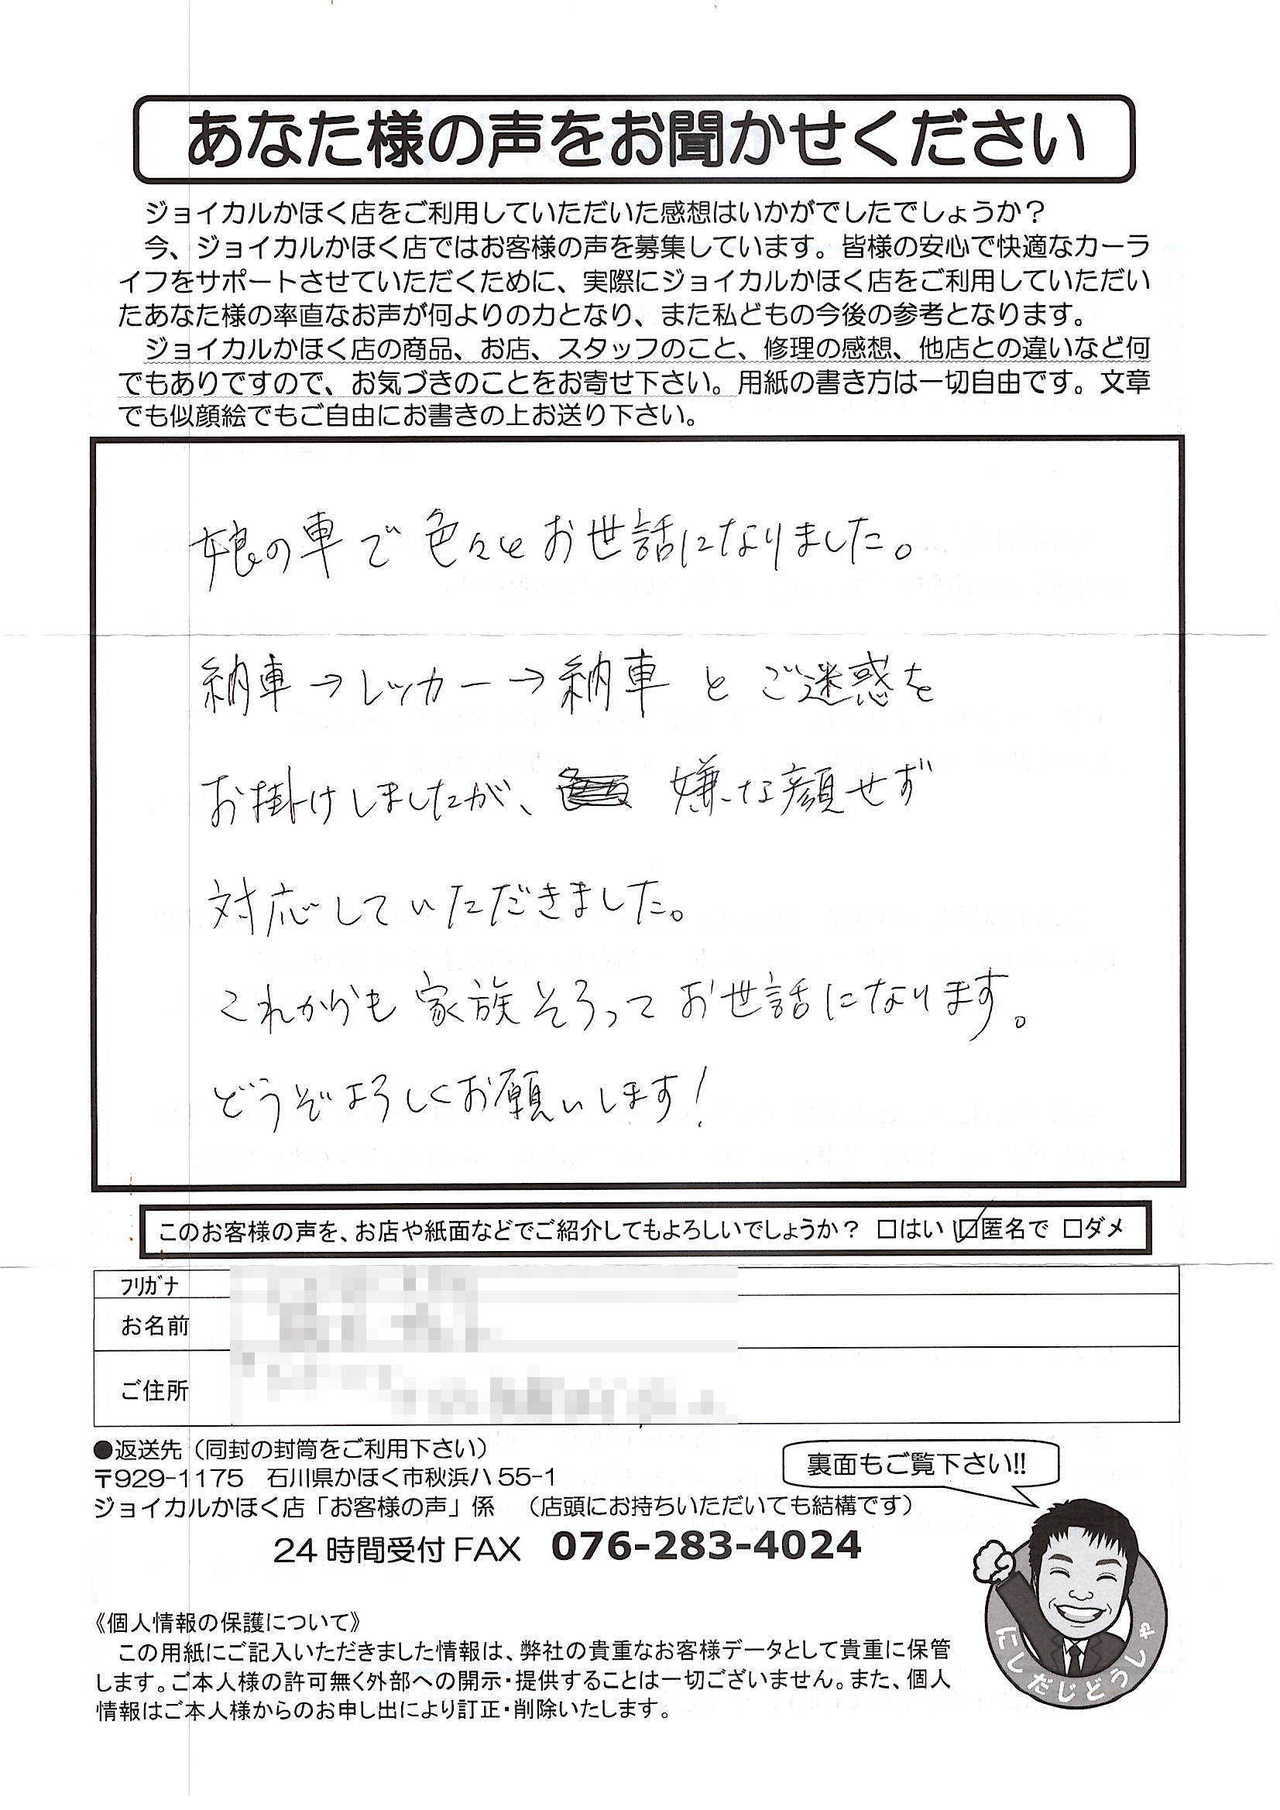 あなた様の声をお聞かせください
ジョイカルかほく店をご利用していただいた感想はいかがでしたでしょうか？
今、ジョイカルかほく店ではお客様の声を募集しています。皆様の安心で快適なカーラ
イフをサポートさせていただくために、実際にジョイカルかほく店をご利用していただい
たあなた様の率直なお声が何よりの力となり、また私どもの今後の参考となります。
ジョイカルかほく店の商品、お店、スタッフのこと、修理の感想、他店との違いなど何
でもありですので、お気づきのことをお寄せ下さい。用紙の書き方は一切自由です。文章
でも似顔絵でもご自由にお書きの上お送り下さい。
娘の車で色々とお世話になりました。
納車→レッカー→納車とご迷惑を
お掛けしましたが、嫌な顔せず
対応していただきました。
これからも家族そろってお世話になります。
どうぞよろしくお願いします!
このお客様の声を、お店や紙面などでご紹介してもよろしいでしょうか？ □はい ☑匿名で □ダメ
フリガナ
お名前
ご住所
●返送先（同封の封筒をご利用下さい）
〒929-1175 石川県かほく市秋浜ハ55-1
ジョイカルかほく店「お客様の声」係 （店頭にお持ちいただいても結構です）
24時間受付FAX 076-283-4024
裏面もご覧下さい!!
にしだじどうしゃ
《個人情報の保護について》
この用紙にご記入いただきました情報は、弊社の貴重なお客様データとして貴重に保管
します。ご本人様の許可無く外部への開示・提供することは一切ございません。また、個人
情報はご本人様からのお申し出により訂正・削除いたします。